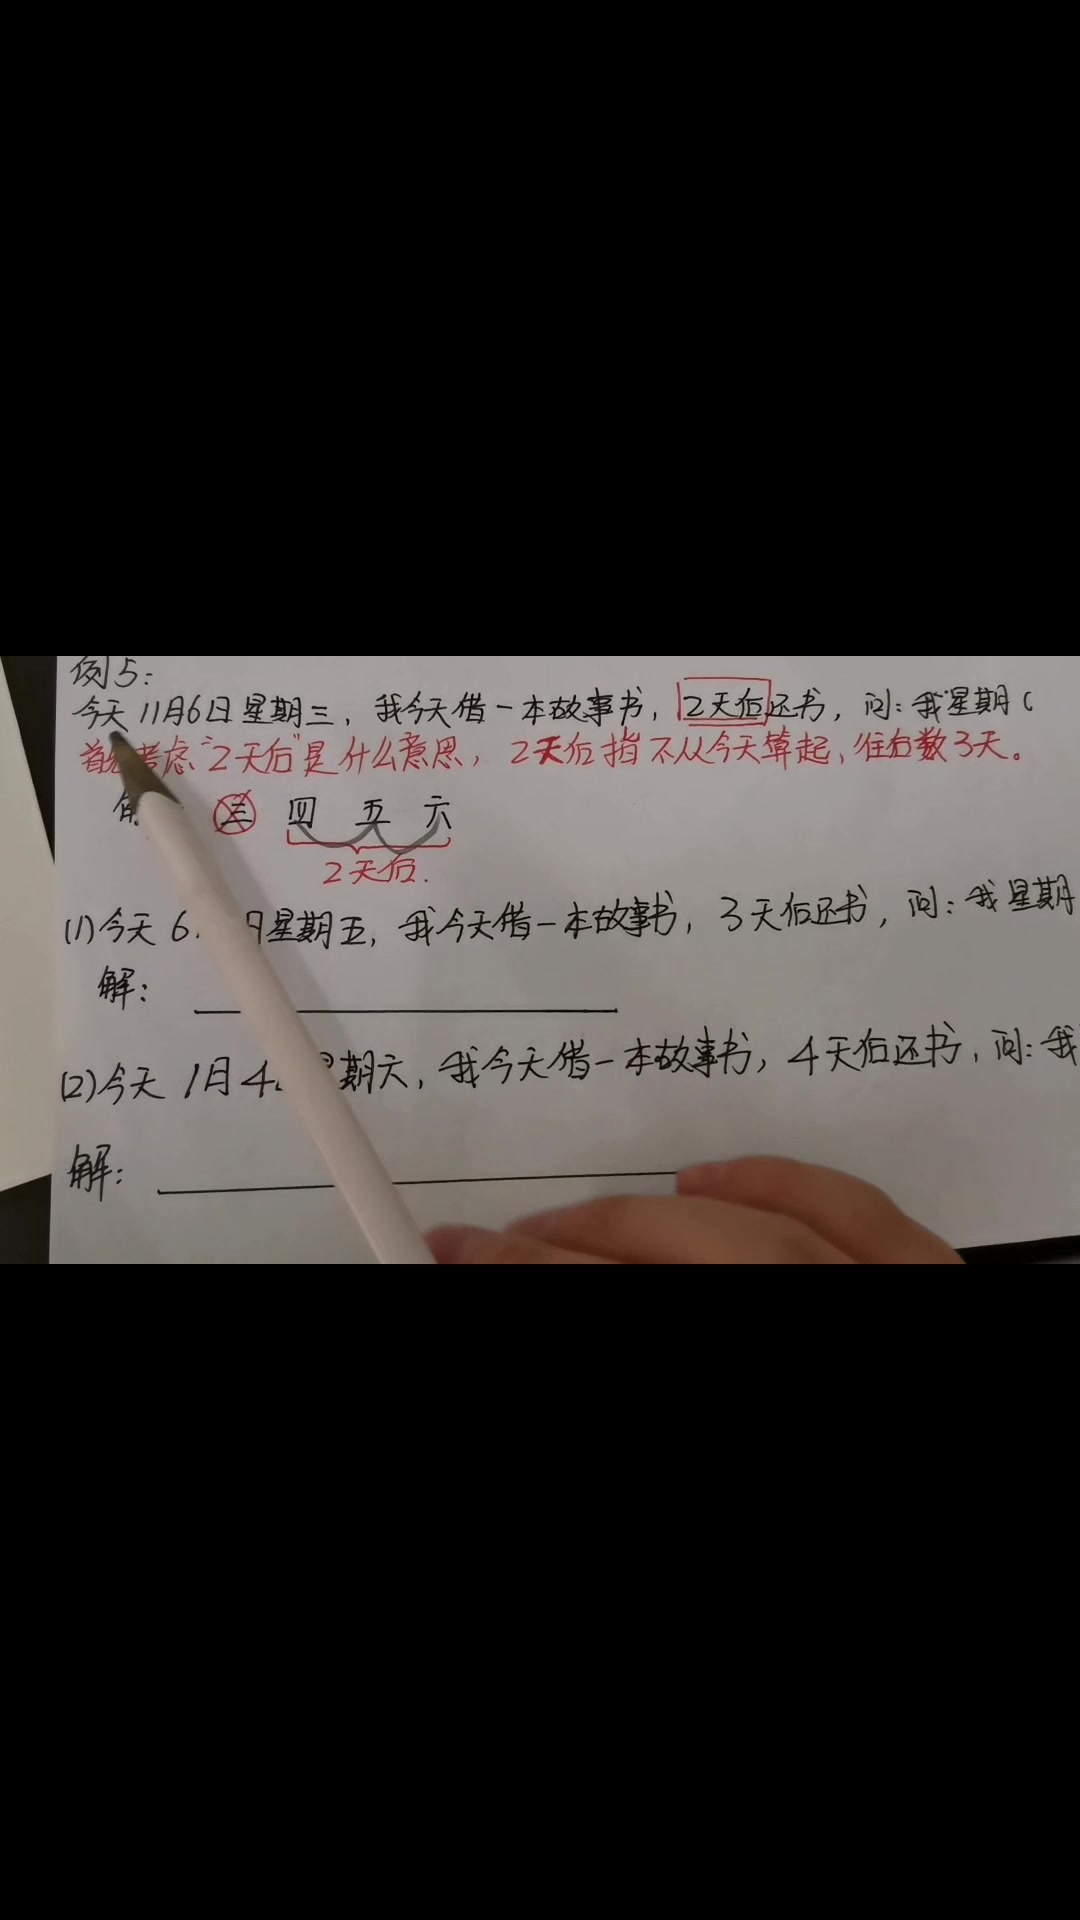 例5:
今天11月6日星期三，我今天借一本故事书，2天后还书，问：我星期（
首先考虑“2天后”是什么意思，2天后指不从今天算起，往后数3天。
三 四 五 六
2天后.
(1)今天6 日星期五，我今天借一本故事书，3天后还书，问：我星期
解：
(2)今天1月4 星期六，我今天借一本故事书，4天后还书，问：我
解：